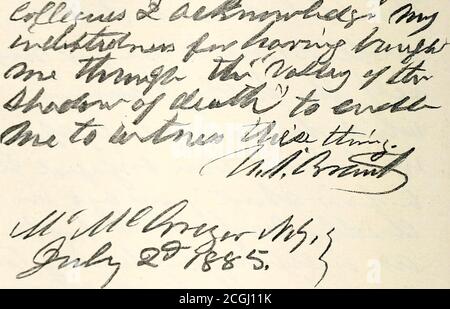 Colleagues I acknowledge my
indebtedness for having brought
me through the "valley of the
shadow of death" to enable
me to witness these things.
U. S. Grant
Mt McGregor N.Y.
July 2d 1885.
2CGJ11K